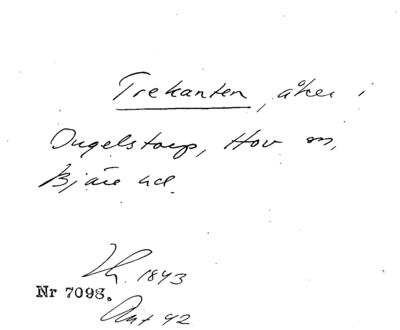 Trekanten, åker i
Dugelstorp, Hov sn,
Bjäre hd.
Lh. 1843
Nr 7098.
Ant 92